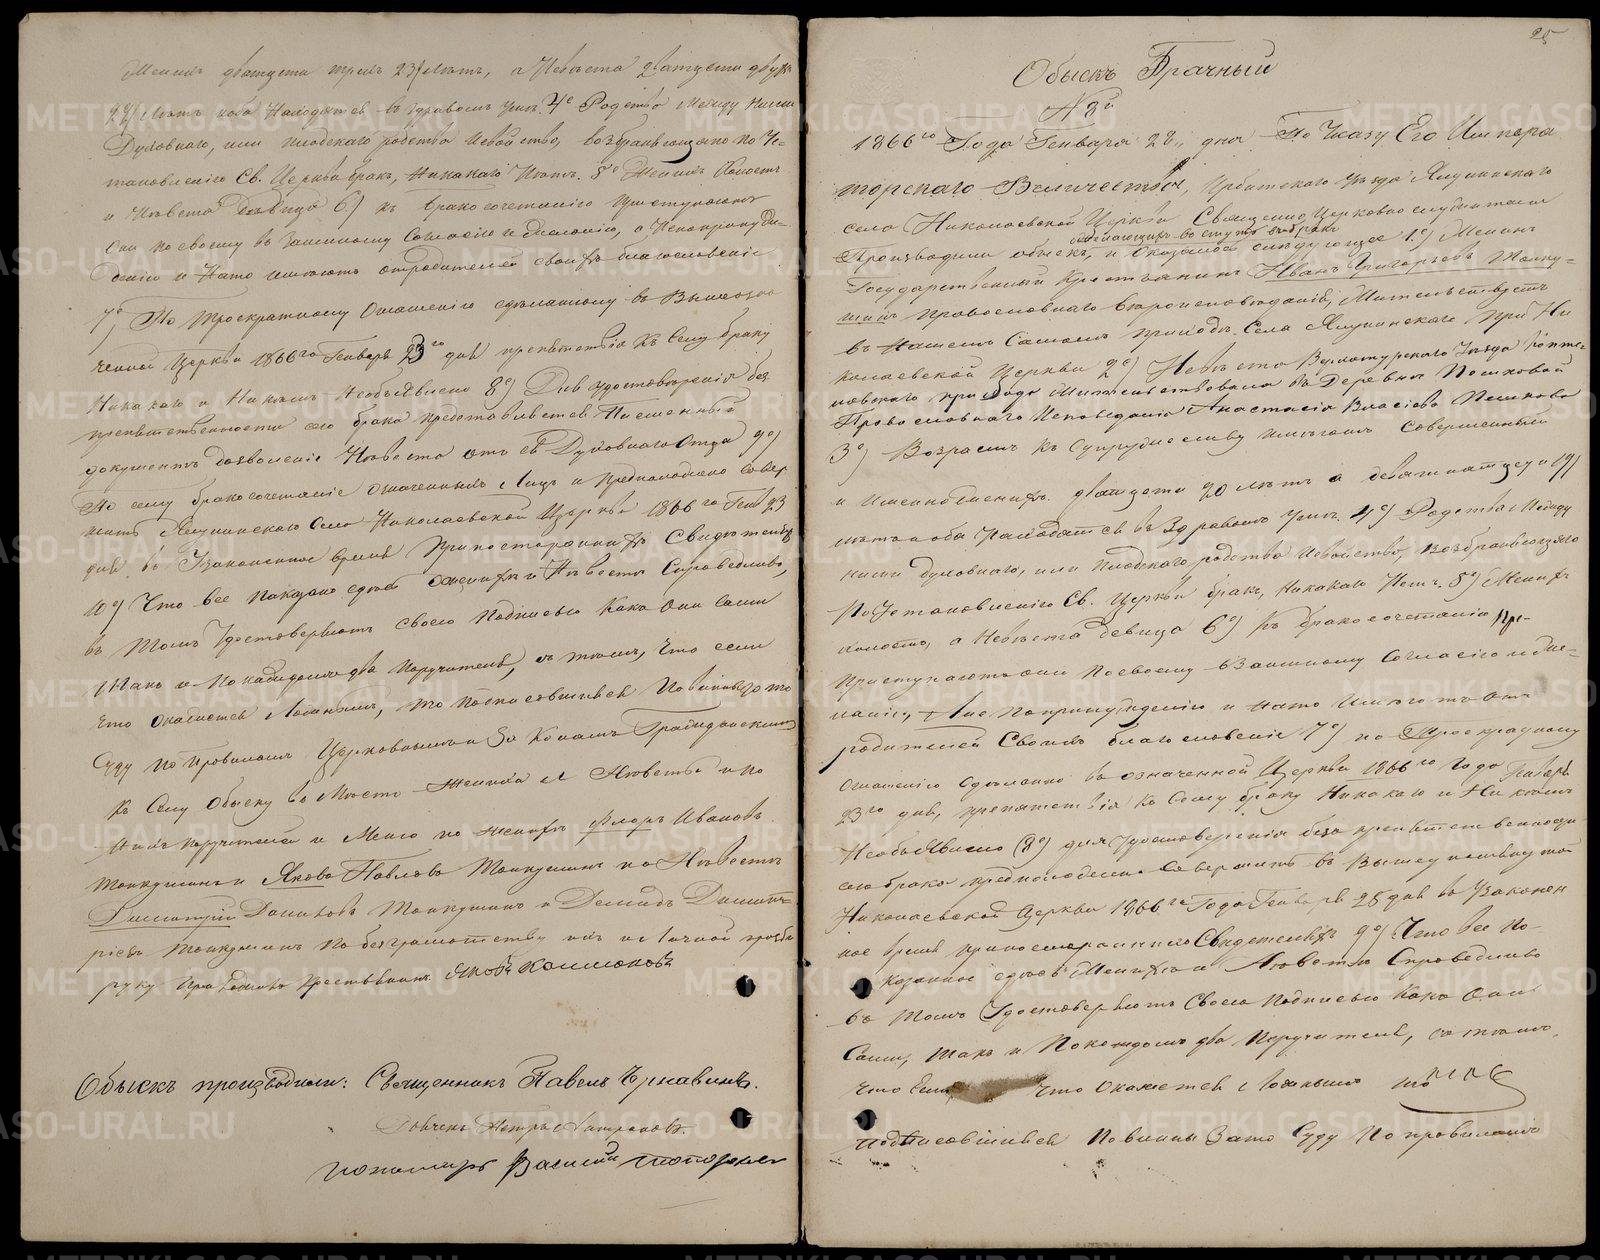 Женихъ дватцети трехъ 23) лѣтъ, а Невѣста дватцети двухъ
22) лѣтъ оба Находятся въ здравомъ умѣ. 4е Родства Между Ними
Духовнаго, или плотскаго родства и свойства, возбраняющаго по Ус-
тановленію Св. Церкви бракъ, никакаго Нѣтъ. 5е Женихъ Холостъ
и Невѣста Девица 6) къ бракосочетанію приступаютъ
Они по своему взаимному Согласію и желанію, а Непопринужде-
ніи и Нато имѣютъ отродителей своихъ благословеніе
7е) По троекратному Оглашенію сдѣланному въ Вышеозна
ченной Церкви 1866го Генваря 23го дня препятствія къ Сему браку
Никакаго и Никемъ Необъявлено 8е) Для удостоверенія без
препятственности сего брака представляется Писменный
документъ дозволеніе Невѣсты отъ ея Духовнаго Отца 9е)
По сему бракосочетаніе означенныхъ Лицъ и предположено совер
шить Ялунинскаго Села Николаевской Церкви 1866го Генв 23
дня въ Узаконенное время При постороннихъ Свидетеляхъ
10е) Что все показано здесь Женихѣ и Невѣсте Справедливо,
въ томъ Удостоверяютъ своею Подписью Какъ Они Сами
такъ и Покаждомъ два поручителя, съ темъ, что если
что окажется Ложнымъ, то подписавшіеся Повинны зато
Суду по правиламъ Церковнымъ и За Конамъ Гражданскимъ
Къ Сему Обыску вмѣсто Жениха и Невѣсты и по
нихъ поручителей и Меню по женихѣ Флоръ Ивановъ
Толкушинъ и Яковъ Павловъ Толкушинъ по Невѣсте
Дмитрій Даниловъ Толкушинъ и Демидъ Дмит-
ріевъ Толкушинъ по безграмотству ихъ и Личной прозбе
руку приложилъ крестьянинъ Яковъ
Обыскъ производили: Священникъ Павелъ Чернавинъ.
Дьячекъ Петръ
пономарь Василій Топорковъ
25
Обыскъ Брачный
№ 3й
1866го Года Генваря 28, дня По Указу Его Импера
торскаго Величества, Ирбитскаго уезда Ялунинскаго
села Николаевской Церкви Священно Церковно служители
желающихъ вступить въ бракъ
Производили обыскъ, и Оказалось следующее 1е) Женихъ
Государственный Крестьянинъ Иванъ Григорьевъ Толку-
шинъ православнаго вероисповѣданія, Жительствуетъ
въ Нашемъ Самомъ приходѣ Села Ялунинскаго при Ни
колаевской Церкви 2е) Невѣста Верхотурскаго Уезда Копте-
ловскаго прихода Жительствовала въ Деревни Пешковой
Православнаго Исповеданія Анастасія Власіева Пешкова
3е) Возрастъ къ Супружеству имѣютъ Совершенный
и именно Женихъ двадцети 20 лѣтъ а девятнатцети 19)
лѣтъ оба Находятся въ Здравомъ умѣ. 4е) Родства Между
ними духовнаго, или Плотскаго родства и свойства, возбраняющаго
По Установленію Св. Церкви бракъ, никакаго Нетъ. 5е) Женихъ
холостъ, а Невѣста девица 6е) Къ бракосочетанію Пре-
приступаютъ они по своему взаимному Согласію и Же-
ланію, А не по принужденію и нато Имеютъ отъ
родителей Своихъ благословеніе 7е) по Троекратному
оглашенію Сделанно въ означенной Церкви 1866го Года Генваря
23го дня, препятствія къ Сему браку Никакаго и Никемъ
Необъявлено 8е) для Удостоверенія безъ препятственности
сего брака предположено Совершить въ Вышеупомянутой
Николаевской Церкви 1866го Года Генваря 28 дня въ Узаконен
ное время при постороннихъ Свидетеляхъ 9е) Что все По-
казанное здесь Женихѣ и Невѣсте Справедливо
въ томъ Удостоверяютъ Своею Подписью Какъ Они
Сами, такъ и Покаждомъ два Поручителя, съ темъ,
что Если что Окажется Ложнымъ то
подписавшіеся Повинны Зато Суду По правиламъ